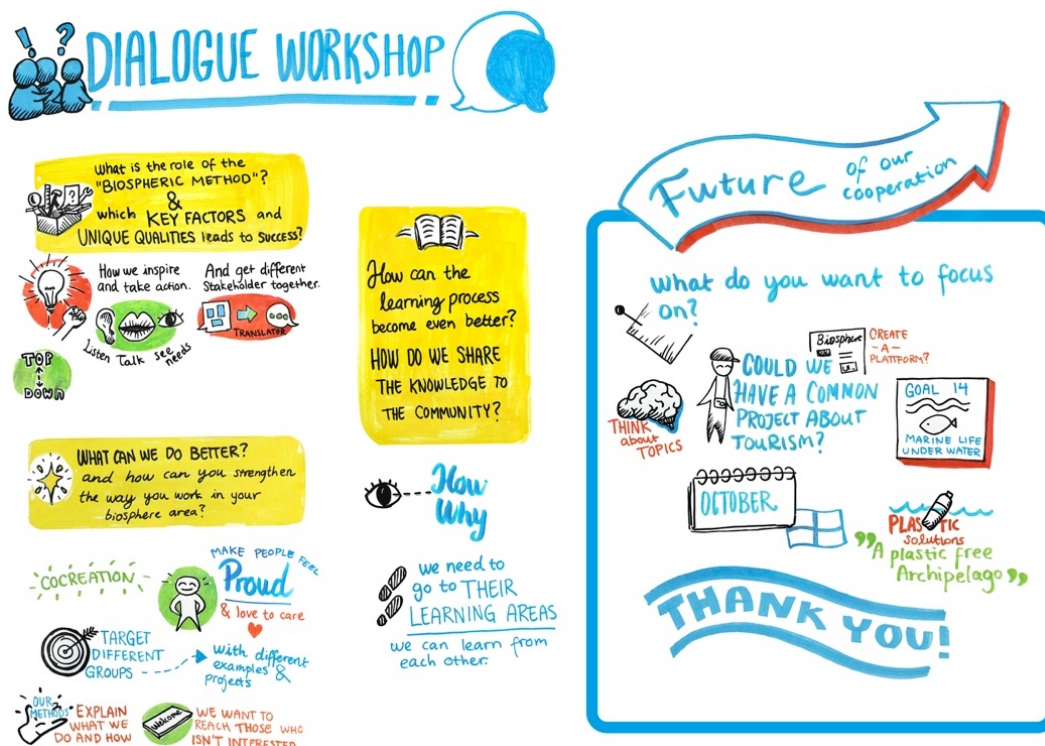 ! ?
DIALOGUE WORKSHOP
What is the role of the
"BIOSPHERIC METHOD"?
&
which KEY FACTORS and
UNIQUE QUALITIES leads to success?
How we inspire
and take action.
And get different
Stakeholder together.
TRANSLATOR
Listen Talk see needs
TOP
DOWN
WHAT CAN WE DO BETTER?
and how can you strengthen
the way you work in your
biosphere area?
COCREATION
MAKE PEOPLE FEEL
Proud
& love to care
TARGET
DIFFERENT
GROUPS
with different
examples &
projects
OUR
METHODS
EXPLAIN
WHAT WE
DO AND HOW
Welcome
WE WANT TO
REACH THOSE WHO
ISN'T INTERESTED
How can the
learning process
become even better?
HOW DO WE SHARE
THE KNOWLEDGE TO
THE COMMUNITY?
How
Why
we need to
go to THEIR
LEARNING AREAS
we can learn from
each other.
Future of our
cooperation
What do you want to focus
on?
Biosphere
CREATE
-A-
PLATTFORM?
THINK
about
TOPICS
COULD WE
HAVE A COMMON
PROJECT ABOUT
TOURISM?
GOAL 14
MARINE LIFE
UNDER WATER
OCTOBER
PLASTIC
solutions
"A plastic free
Archipelago"
THANK YOU!